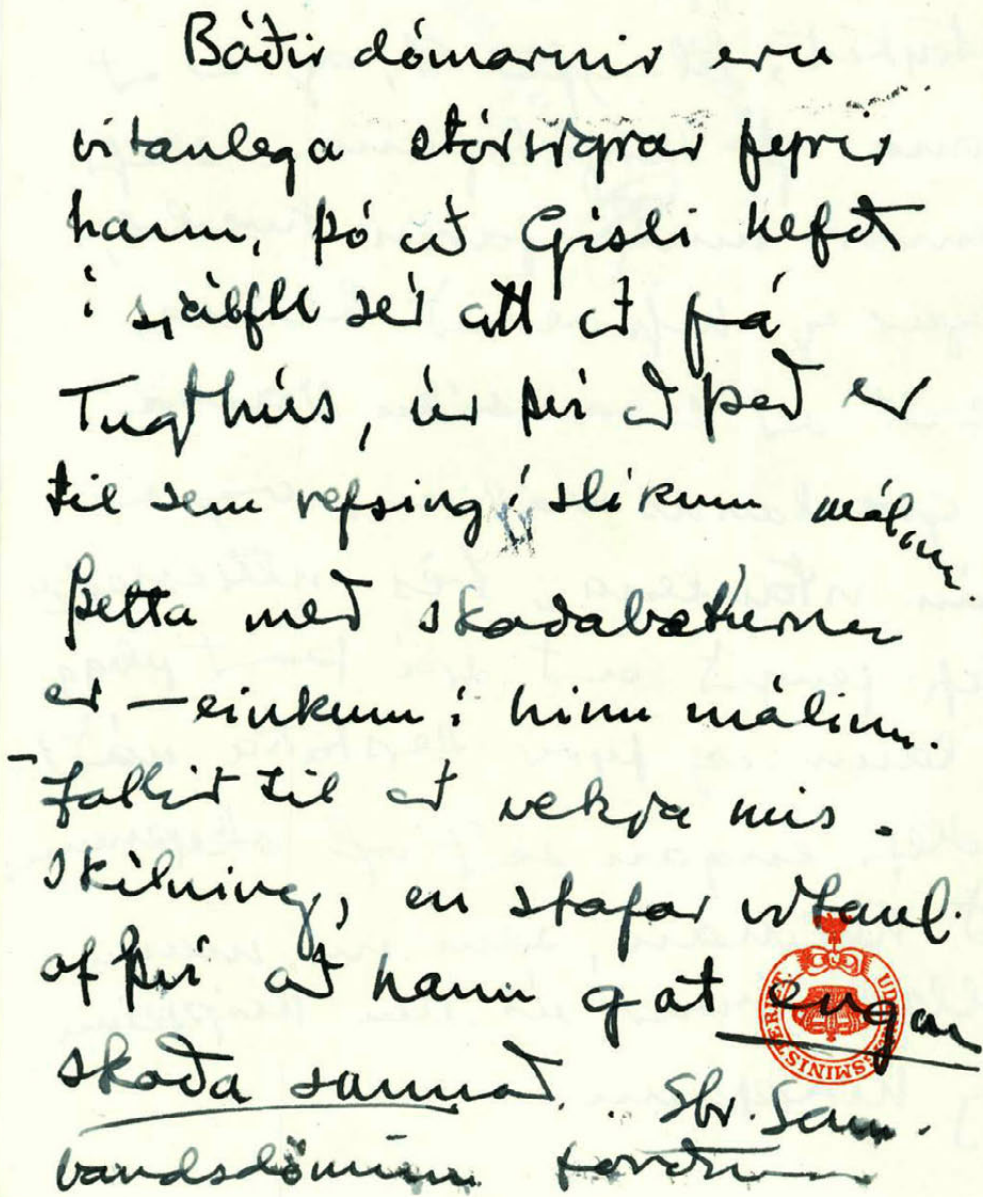 Báðir dómarnir eru
vitanlega stórsigrar fyrir
hann, þó að Gísli hefði
í sjálfu sér átt að fá
Tugthús, úr því að það er
til sem refsing í slíkum málum.
Þetta með skaðabæturnar
er — einkum í hinu málinu
— fallið til að vekja mis-
skilning, en stafar vitanl.
af því að hann gat engan
skaða sannað. Sbr. Sam-
bandsdóminn forðum
UDENRIGSMINISTERIET.